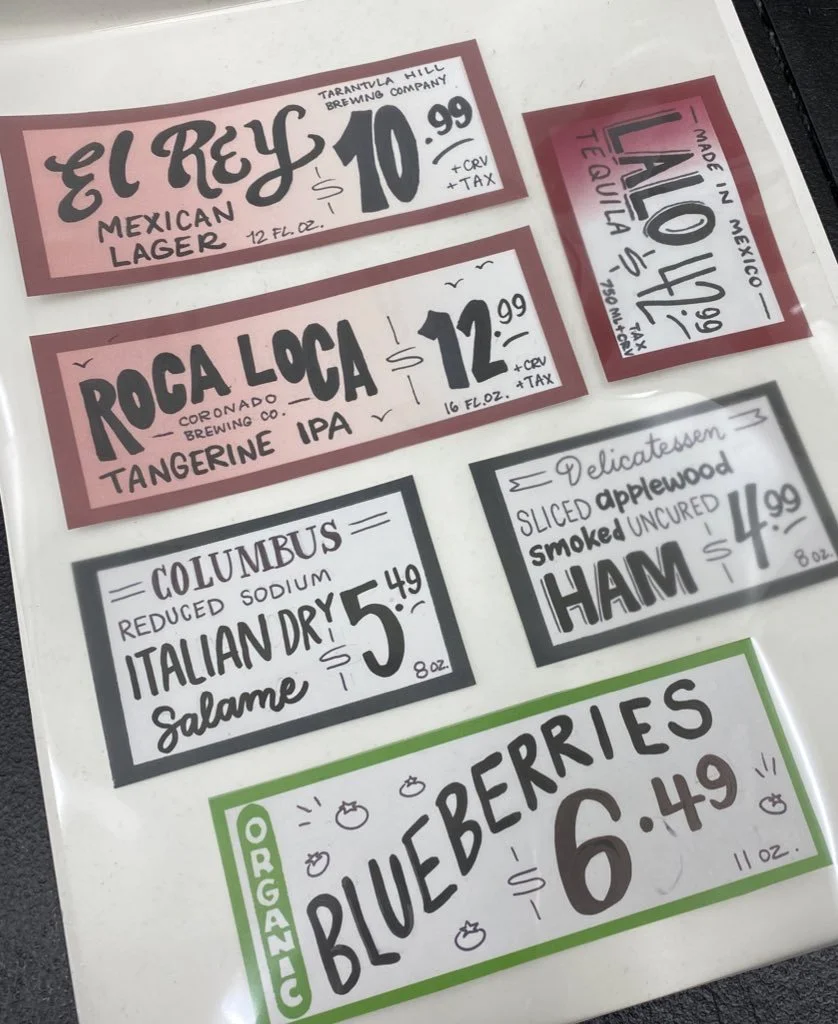 TARANTULA HILL
BREWING COMPANY
El REY
$10.99
MEXICAN
LAGER
12 FL. OZ.
+CRV
+TAX
— MADE IN MEXICO —
LALO
TEQUILA
$42.99
750 ML+CRV
TAX
ROCA LOCA
$12.99
— CORONADO
BREWING CO. —
TANGERINE IPA
16 FL. OZ.
+CRV
+TAX
Delicatessen
SLICED applewood
smoked UNCURED
HAM
$4.99
8 oz.
COLUMBUS
REDUCED SODIUM
ITALIAN DRY
Salame
$5.49
8 oz.
ORGANIC
BLUEBERRIES
$6.49
11 OZ.